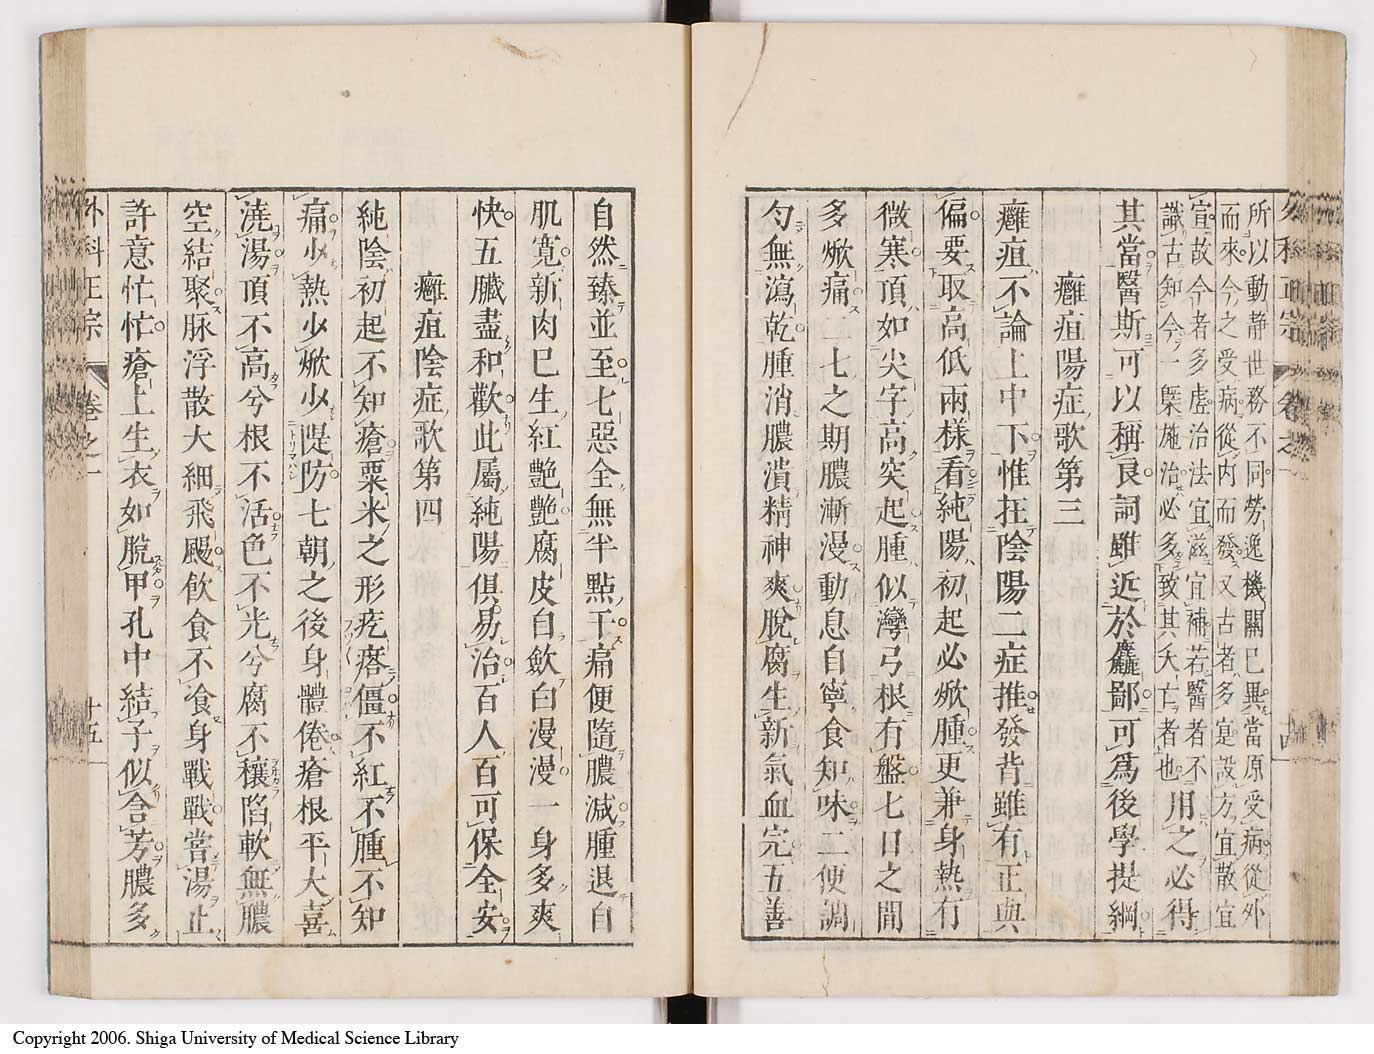 外科正宗 卷之一 十四
所以動靜世務不同勞逸機關已異當原受病從外
而來今之受病從内而發又古者多寔設方宜散宜
宣故今者多虛治法宜滋宜補若醫者不
識古知今一槩施治必多致其夭亡者也 用之必得
其當醫斯可以稱良詞雖近於麤鄙可爲後學提綱
癰疽陽症歌第三
癰疽不論上中下惟在陰陽二症推發背雖有正與
偏要取高低兩樣看純陽初起必焮腫更兼身熱有
微寒頂如尖字高突起腫似彎弓根有盤七日之間
多焮痛二七之期膿漸漫動息自寧食知味二便調
勻無瀉乾腫消膿潰精神爽脫腐生新氣血完五善
自然臻並至七惡全無半點干痛便隨膿減腫退自
肌寬新肉已生紅艷艷腐皮自斂白漫漫一身多爽
快五臟盡和歡此屬純陽俱易治百人百可保全安
癰疽陰症歌第四
純陰初起不知瘡粟米之形疙瘩僵不紅不腫不知
痛少熱少焮少提防七朝之後身體倦瘡根平大喜
澆湯頂不高兮根不活色不光兮腐不穰陷軟無膿
空結聚脉浮散大細飛颺飲食不飡身戰戰嘗湯止
許意忙忙瘡上生衣如脫甲孔中結子似含芳膿多
外科正宗 卷之一 十五
Copyright 2006. Shiga University of Medical Science Library